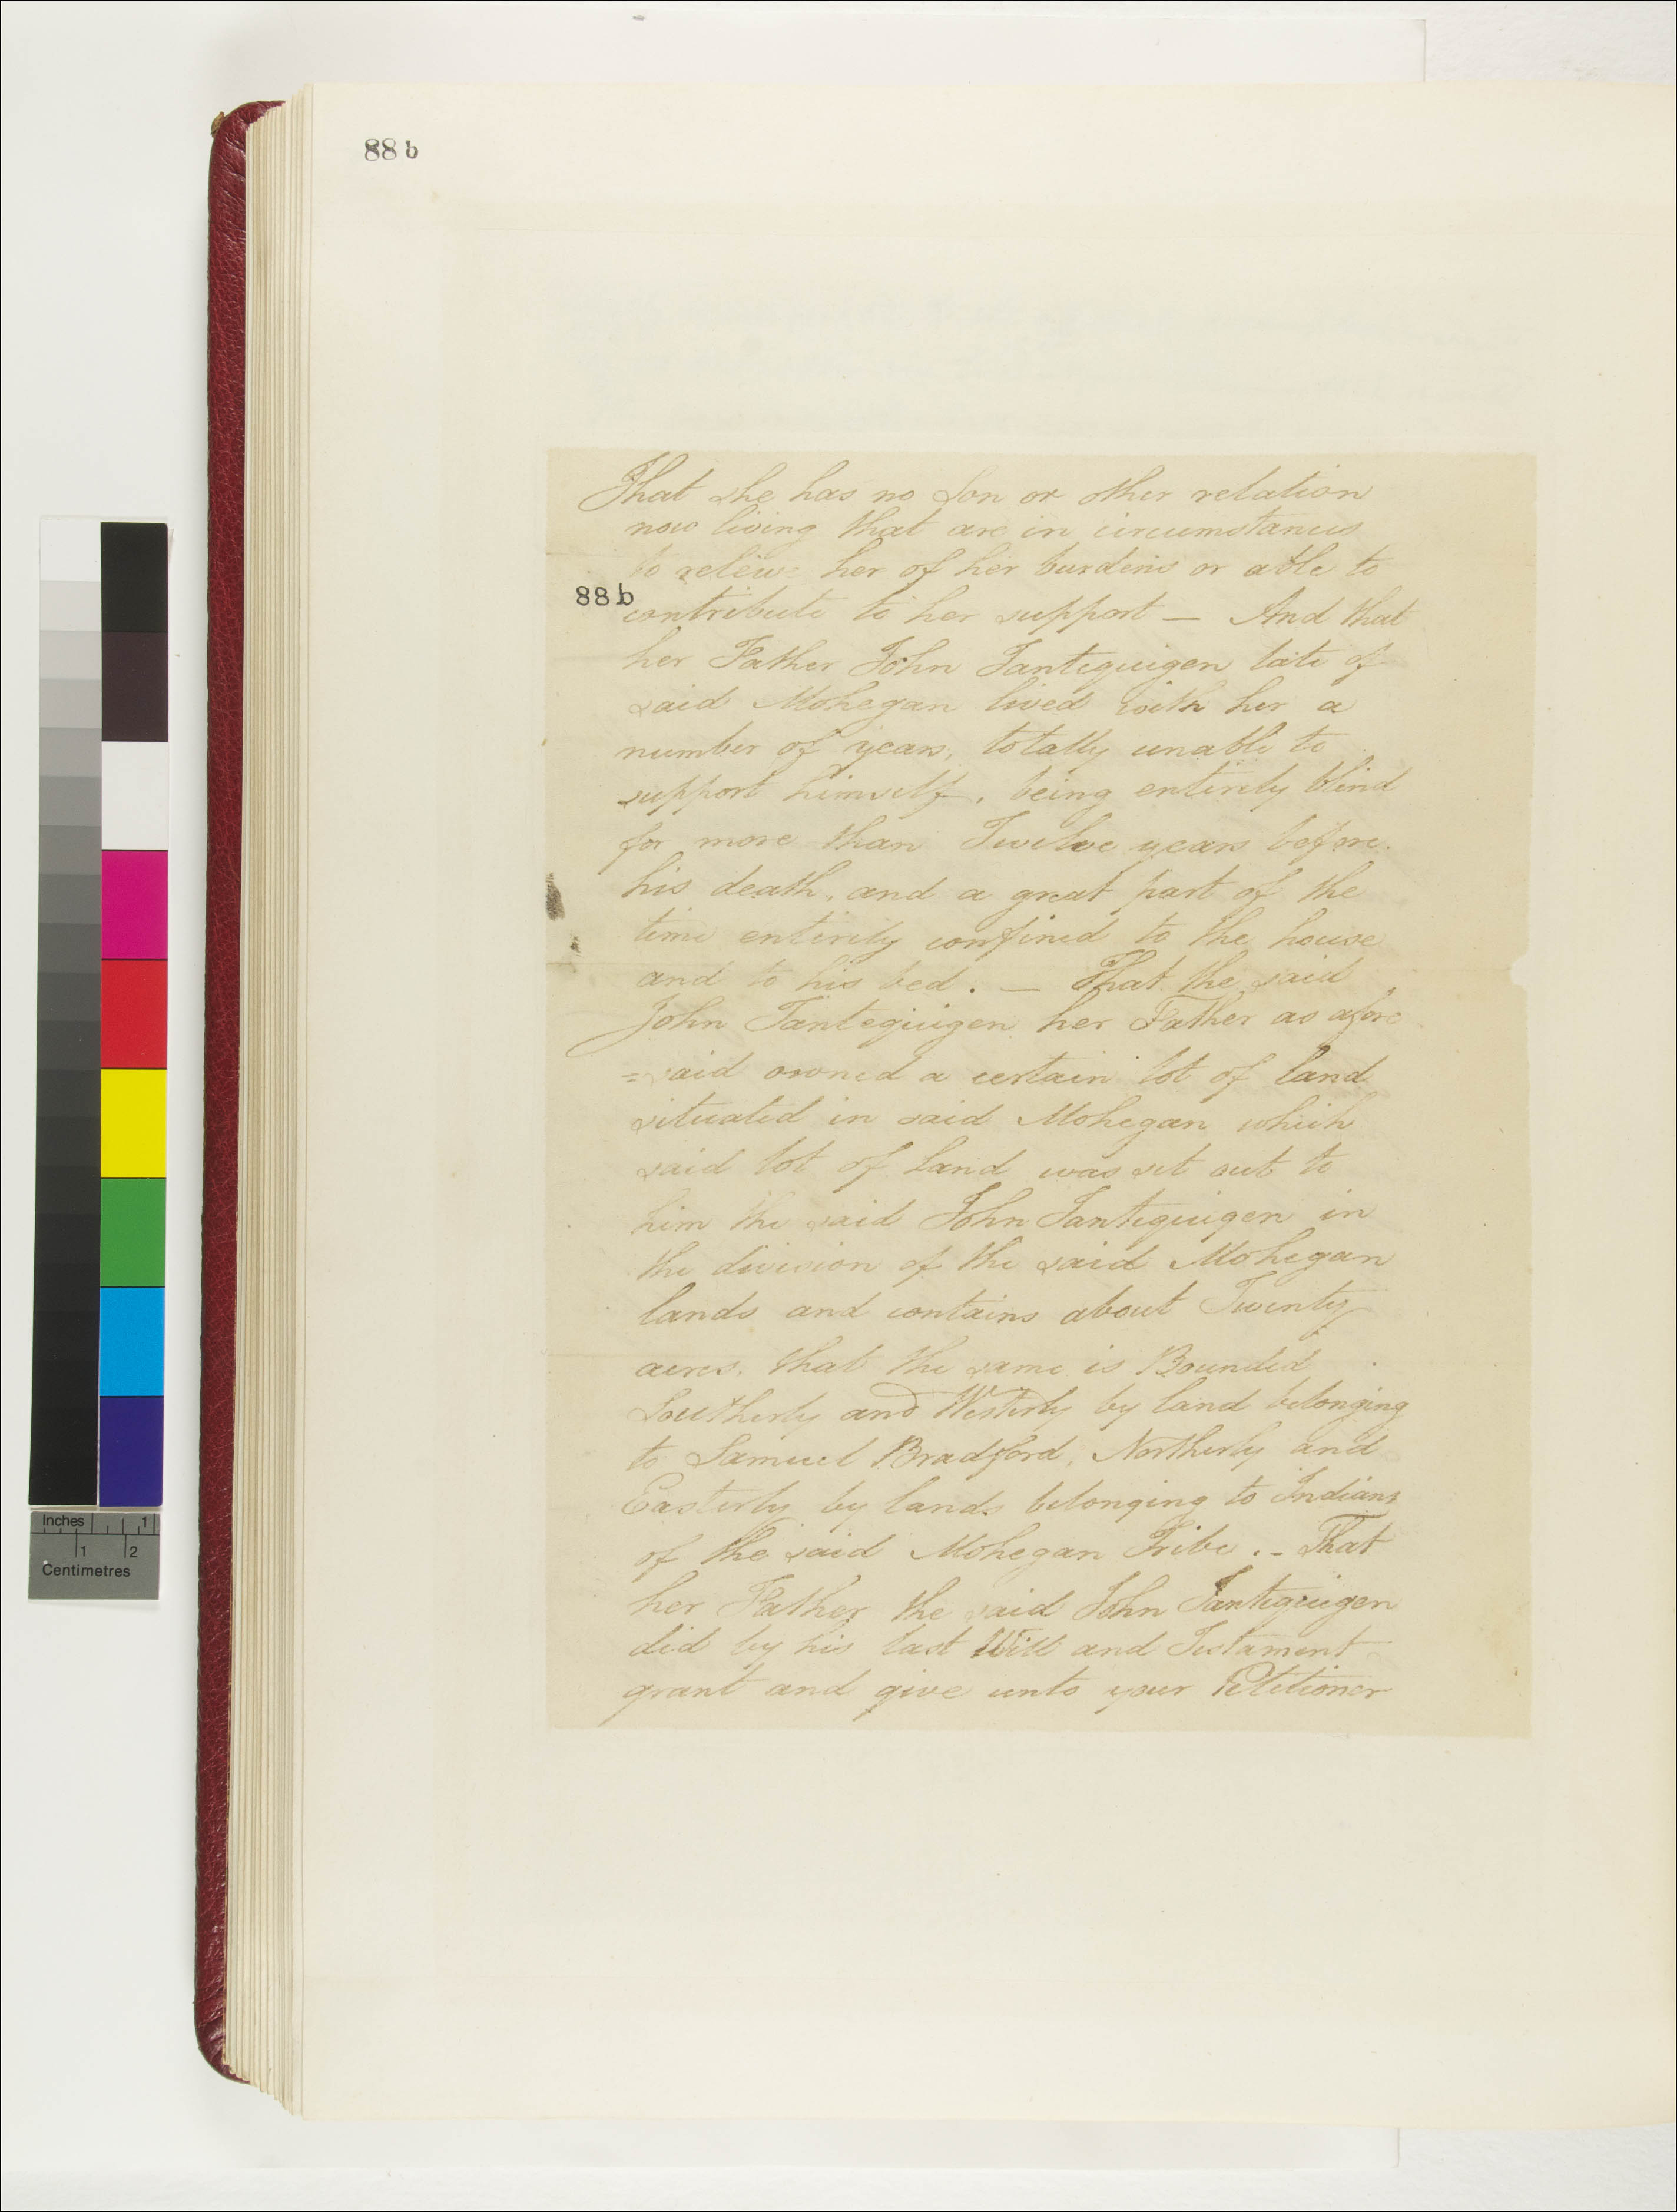 88 b
That she has no Son or other relation
now living that are in circumstances
to releive her of her burdens or able to
88 b
contribute to her support — And that
her Father John Tantequigen late of
said Mohegan lived with her a
number of years, totally unable to
support himself, being entirely blind
for more than Twelve years before
his death, and a great part of the
time entirely confined to the house
and to his bed. — That the said
John Tantequigen her Father as afore
=said owned a certain lot of land
situated in said Mohegan which
said lot of land was set out to
him the said John Tantequigen in
the division of the said Mohegan
lands and contains about Twenty
acres, that the same is Bounded
Southerly and Westerly by land belonging
to Samuel Bradford, Northerly and
Easterly by lands belonging to Indians
of the said Mohegan Tribe. - That
her Father the said John Tantequigen
did by his last Will and Testament
grant and give unto your Petitioner
Inches 1
1 2
Centimetres